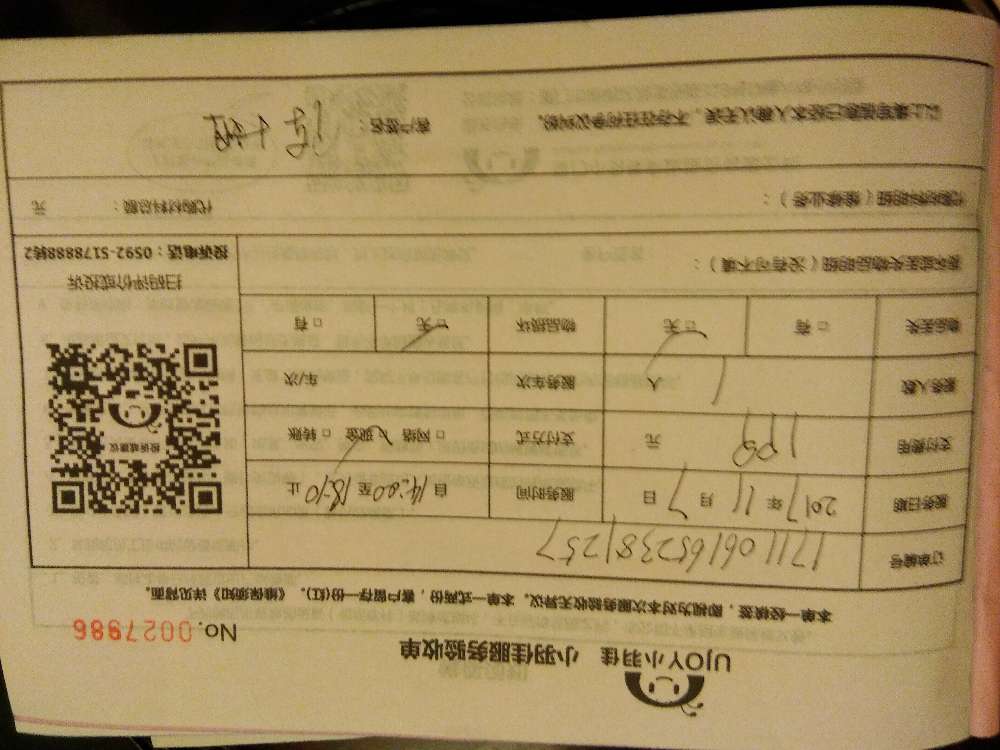 UJOY小羽佳 小羽佳服务验收单
No. 0027986
本单一经核签，即视为对本次服务验收无异议。本单一式两份，客户留存一份(红)。《维保须知》详见背面。
订单编号 1711061652381257
服务日期 2017年11月7日 服务时间 自14:00至18:10止
支付费用 元 支付方式 □网络 □现金 □转账
服务人数 1人 服务车次 车/次
物品丢失 □有 □无 物品损坏 □有 □无
损坏或丢失物品明细（没有可不填）：
投诉或建议
扫码评价或投诉
投诉电话：0592-5178888转2
代购材料明细（维修业务）： 代购材料总额： 元
以上填写信息已经本人确认无误，不存在任何争议纠纷。 客户签名：